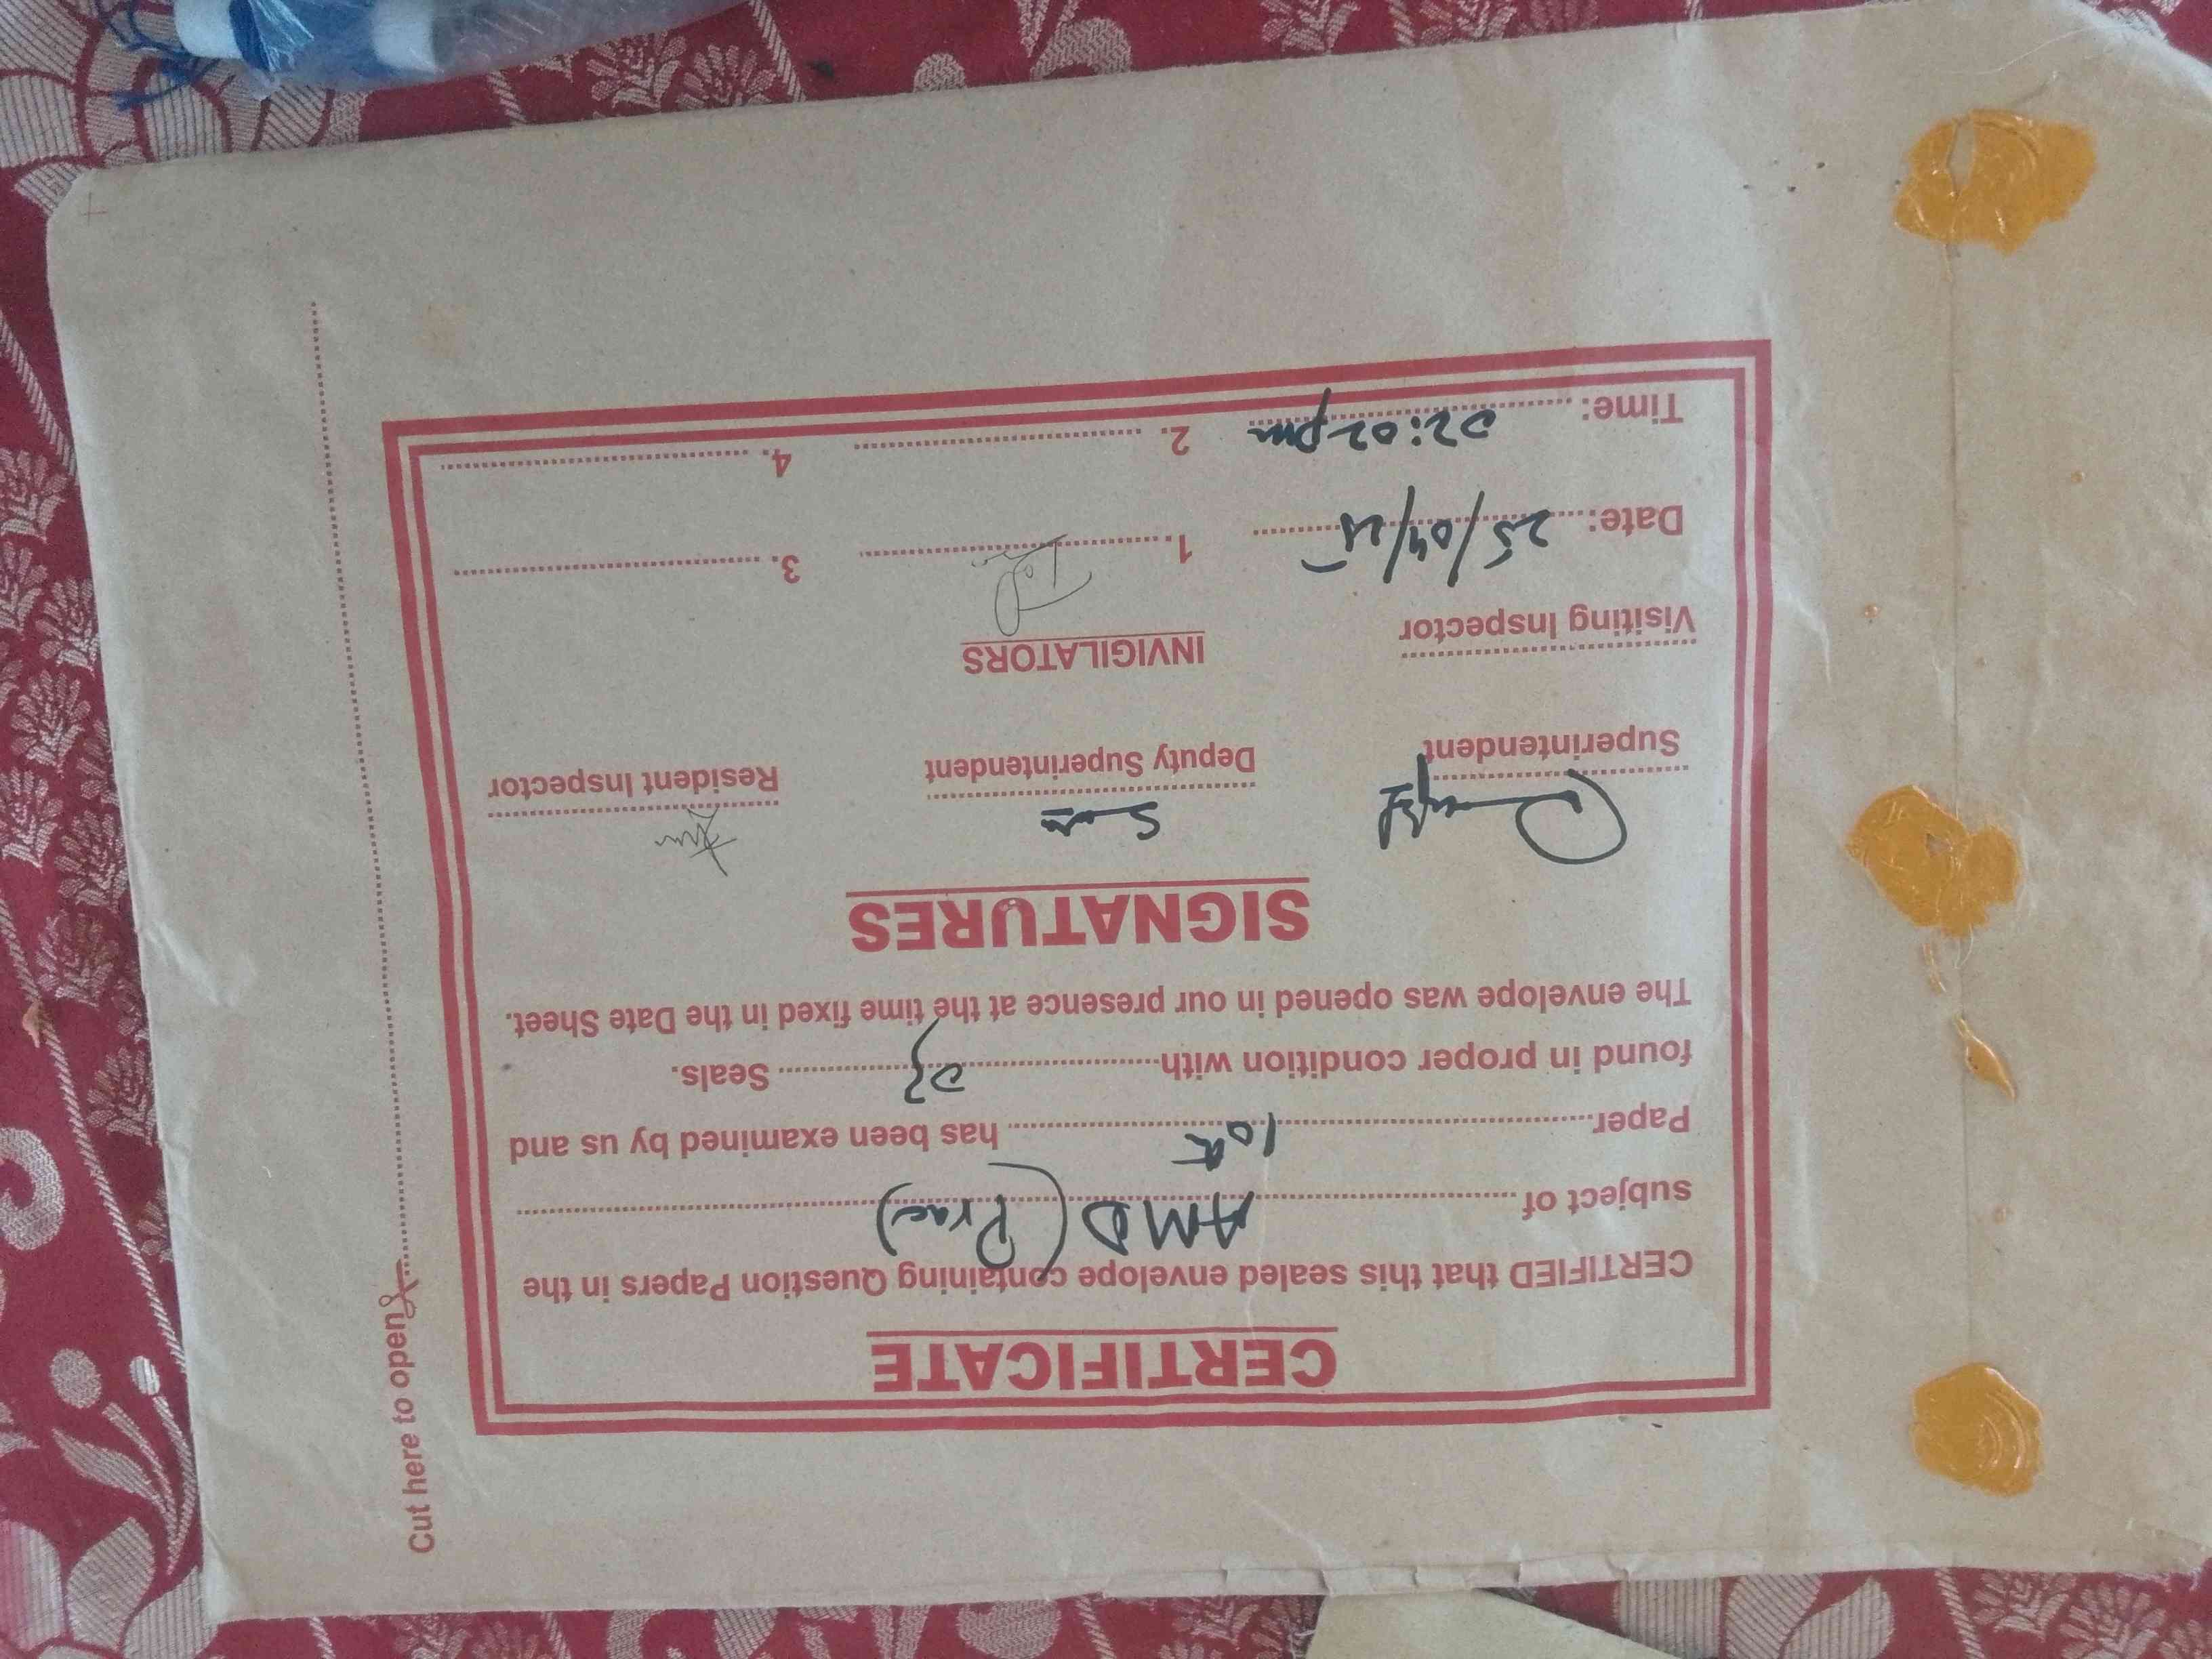 CERTIFICATE
CERTIFIED that this sealed envelope containing Question Papers in the
subject of AMD (Prac)
Paper 10th has been examined by us and
found in proper condition with 03 Seals.
The envelope was opened in our presence at the time fixed in the Date Sheet.
SIGNATURES
Superintendent Deputy Superintendent Resident Inspector
Visiting Inspector INVIGILATORS
Date: 25/04/25 1. 3.
Time: 02:02 pm 2. 4.
Cut here to open